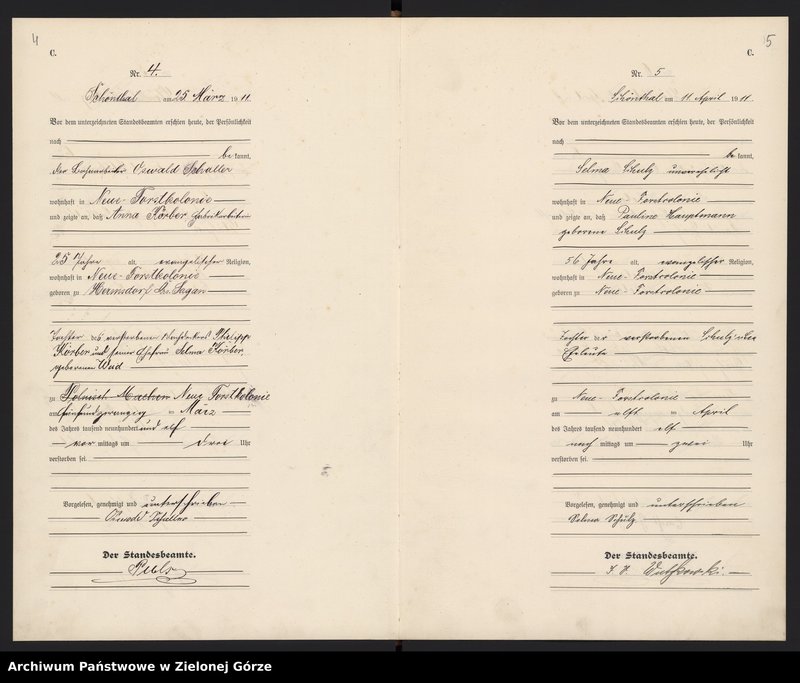 4
C.
Nr. 4.
Schönthal am 25 März 1911
Vor dem unterzeichneten Standesbeamten erschien heute, der Persönlichkeit
nach
be kannt,
der Oswald Schaller
wohnhaft in Neue-Forstkolonie
und zeigte an, daß Anna Körber, Fabrikarbeiterin
25 Jahre alt, evangelischer Religion,
wohnhaft in Neue-Forstkolonie
geboren zu Hermsdorf Kr. Sagan
Tochter des verstorbenen Philipp
Körber und seiner Ehefrau Selma Körber,
geborenen
zu Polnisch Machen Neue Forstkolonie
am fünfundzwanzig ten März
des Jahres tausend neunhundert und elf
vor mittags um drei Uhr
verstorben sei.
Vorgelesen, genehmigt und unterschrieben
Oswald Schaller
Der Standesbeamte.
5
C.
Nr. 5
Schönthal am 11 April 1911
Vor dem unterzeichneten Standesbeamten erschien heute, der Persönlichkeit
nach
be kannt,
Selma Schulz unverehelicht
wohnhaft in Neue-Forstcolonie
und zeigte an, daß Pauline Hauptmann
geborene Schulz
56 Jahre alt, evangelischer Religion,
wohnhaft in Neue-Forstcolonie
geboren zu Neue-Forstcolonie
Tochter der verstorbenen Schulz'schen
Eheleute
zu Neue-Forstcolonie
am elft ten April
des Jahres tausend neunhundert elf
nach mittags um zwei Uhr
verstorben sei.
Vorgelesen, genehmigt und unterschrieben
Selma Schulz
Der Standesbeamte.
Archiwum Państwowe w Zielonej Górze